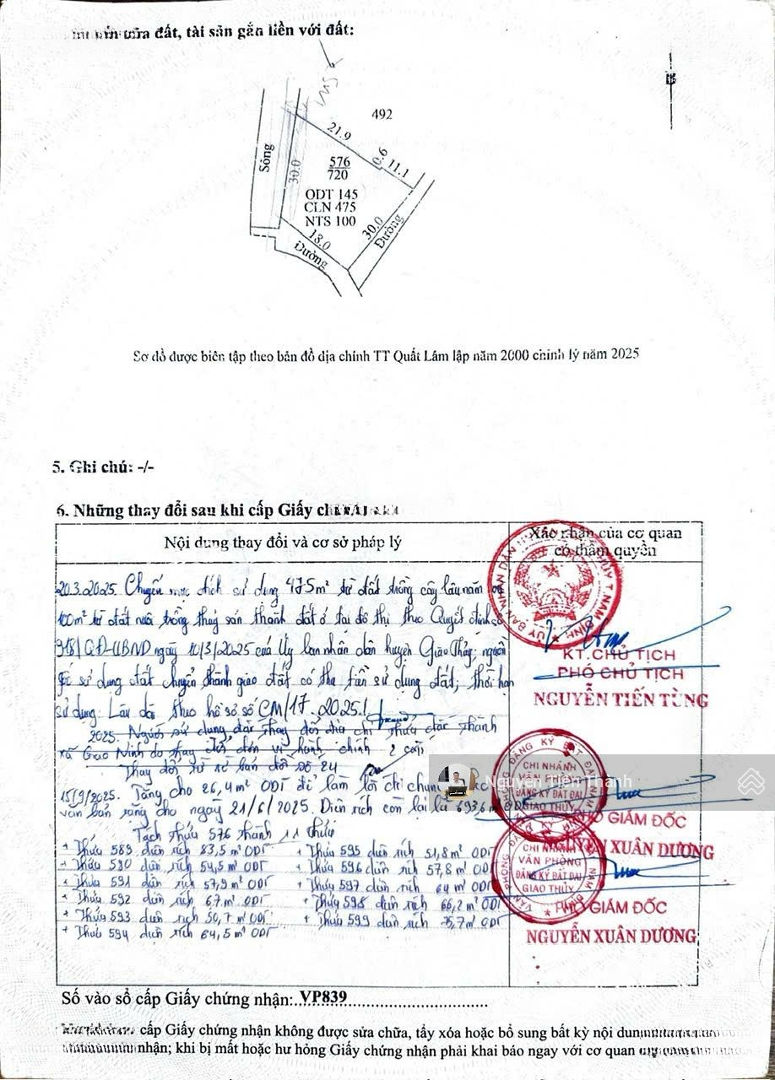 của đất, tài sản gắn liền với đất:
492
21.9
0.6
11.1
Sông
30.0
576
720
ODT 145
CLN 475
NTS 100
18.0
30.0
Đường
Đường
Sơ đồ được biên tập theo bản đồ địa chính TT Quất Lâm lập năm 2000 chỉnh lý năm 2025
5. Ghi chú: -/-
6. Những thay đổi sau khi cấp Giấy
Nội dung thay đổi và cơ sở pháp lý
Xác nhận của cơ quan
có thẩm quyền
20.3.2025. Chuyển mục đích sử dụng 475m² từ đất trồng cây lâu năm và
100m² từ đất nuôi trồng thuỷ sản thành đất ở tại đô thị theo Quyết định số
918/QĐ-UBND ngày 10/3/2025 của Uỷ ban nhân dân huyện Giao Thủy; nguồn
gốc sử dụng đất chuyển thành giao đất có thu tiền sử dụng đất; thời hạn
sử dụng: Lâu dài theo hồ sơ số CM/17.2025./.
KT.CHỦ TỊCH
PHÓ CHỦ TỊCH
NGUYỄN TIẾN TÙNG
2025. Người sử dụng đất thay đổi địa chỉ thửa đất thành
xã Giao Ninh do thay đổi đơn vị hành chính
Thay đổi tờ số bản đồ số 24
15/9/2025. Tặng cho 26,4m² ODT để làm lối đi chung
văn bản tặng cho ngày 21/6/2025. Diện tích còn lại là 693,6m²
Tách thửa 576 thành 11 thửa
+ Thửa 589 diện tích 83,5m² ODT
+ Thửa 590 diện tích 54,5m² ODT
+ Thửa 591 diện tích 57,9m² ODT
+ Thửa 592 diện tích 67m² ODT
+ Thửa 593 diện tích 50,7m² ODT
+ Thửa 594 diện tích 64,5m² ODT
+ Thửa 595 diện tích 51,8m² ODT
+ Thửa 596 diện tích 57,8m² ODT
+ Thửa 597 diện tích 64m² ODT
+ Thửa 598 diện tích 66,2m² ODT
+ Thửa 599 diện tích 75,7m² ODT
CHI NHÁNH
VĂN PHÒNG
ĐĂNG KÝ ĐẤT ĐAI
GIAO THỦY
PHÓ GIÁM ĐỐC
NGUYỄN XUÂN DƯƠNG
CHI NHÁNH
VĂN PHÒNG
ĐĂNG KÝ ĐẤT ĐAI
GIAO THỦY
PHÓ GIÁM ĐỐC
NGUYỄN XUÂN DƯƠNG
Số vào sổ cấp Giấy chứng nhận: VP839
cấp Giấy chứng nhận không được sửa chữa, tẩy xóa hoặc bổ sung bất kỳ nội dung
nhận; khi bị mất hoặc hư hỏng Giấy chứng nhận phải khai báo ngay với cơ quan